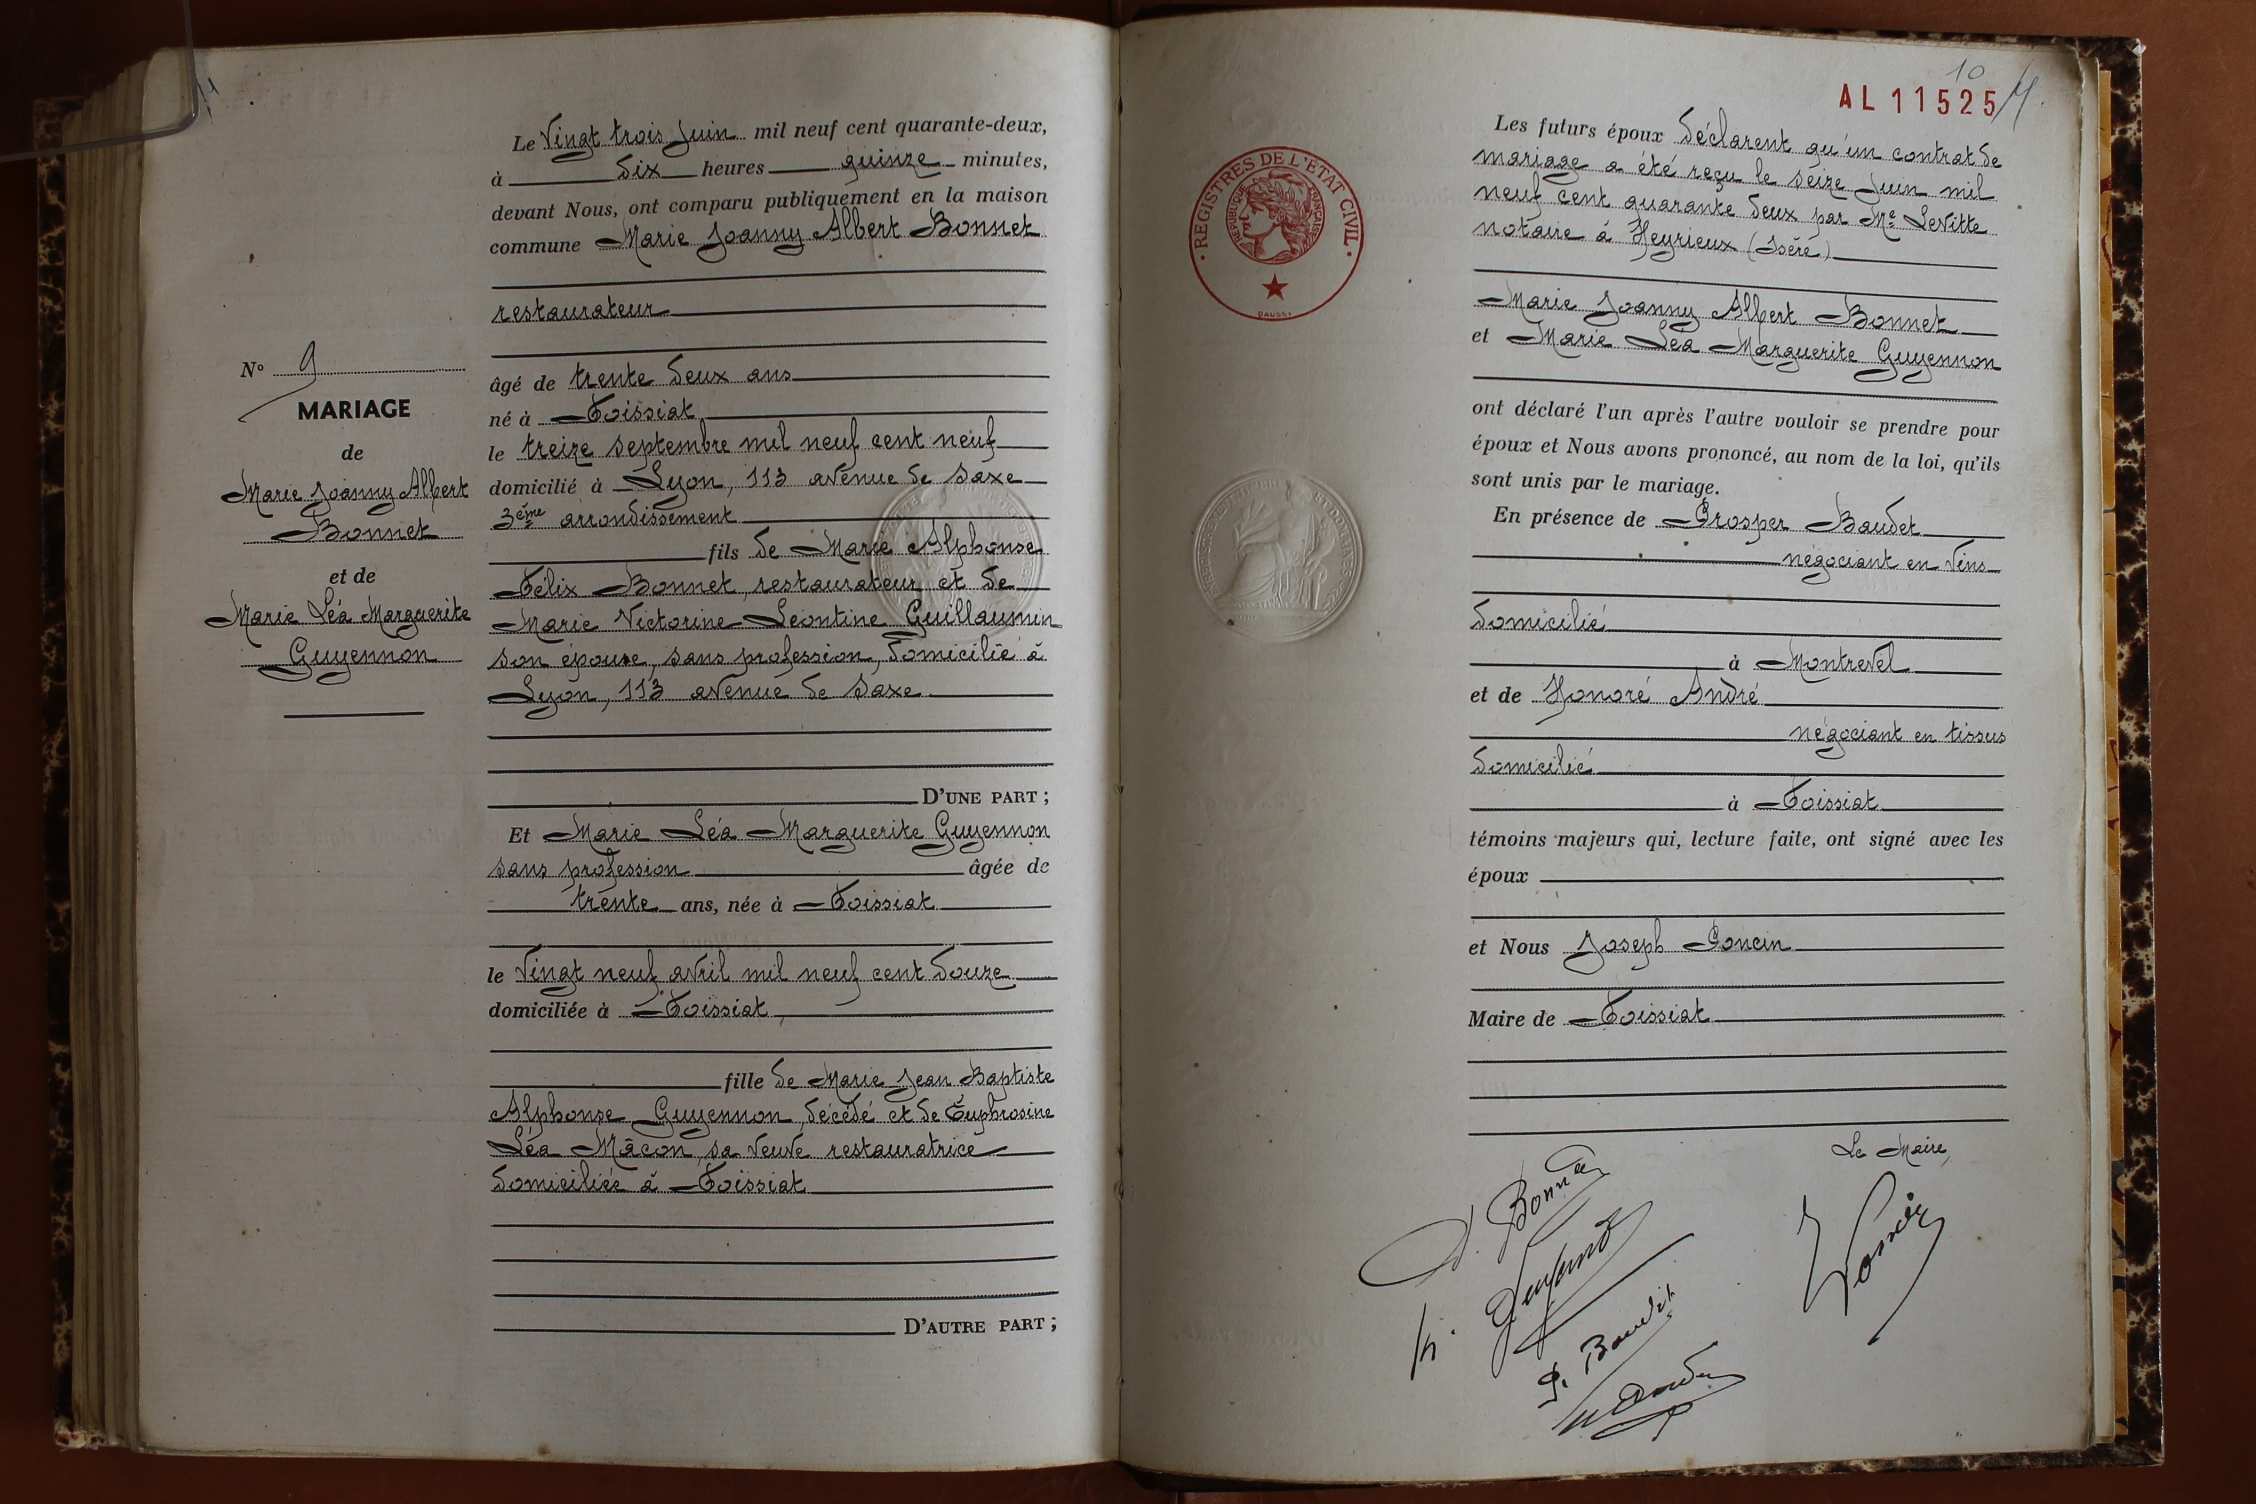 N° 9
MARIAGE
de
Marie Joanny Albert
Bonnet
et de
Marie Léa Marguerite
Guyennon
Le Vingt trois Juin mil neuf cent quarante-deux,
à dix heures quinze minutes,
devant Nous, ont comparu publiquement en la maison
commune Marie Joanny Albert Bonnet
restaurateur
âgé de trente deux ans
né à Foissiat
le treize septembre mil neuf cent neuf
domicilié à Lyon, 113 avenue de Saxe
3ème arrondissement
fils de Marie Alphonse
Félix Bonnet, restaurateur et de
Marie Victorine Léontine Guillaumin
son épouse, sans profession, domicilié à
Lyon, 113 avenue de Saxe
D'UNE PART ;
Et Marie Léa Marguerite Guyennon
sans profession âgée de
trente ans, née à Foissiat
le Vingt neuf avril mil neuf cent douze
domiciliée à Foissiat
fille de Marie Jean Baptiste
Alphonse Guyennon, décédé et de Euphrosine
Léa Mâcon, sa veuve restauratrice
domiciliée à Foissiat
D'AUTRE PART ;
10
AL 11525
REGISTRES DE L'ÉTAT CIVIL
RÉPUBLIQUE FRANÇAISE
Les futurs époux déclarent qu'un contrat de
mariage a été reçu le seize Juin mil
neuf cent quarante deux par Me Levitte
notaire à Heyrieux (Isère)
Marie Joanny Albert Bonnet
et Marie Léa Marguerite Guyennon
ont déclaré l'un après l'autre vouloir se prendre pour
époux et Nous avons prononcé, au nom de la loi, qu'ils
sont unis par le mariage.
En présence de Prosper Baudet
négociant en vins
domicilié
à Montrevel
et de Honoré André
négociant en tissus
domicilié
à Foissiat
témoins majeurs qui, lecture faite, ont signé avec les
époux
et Nous Joseph Poncin
Maire de Foissiat
Le Maire,
A. Bonnet
P. Baudet